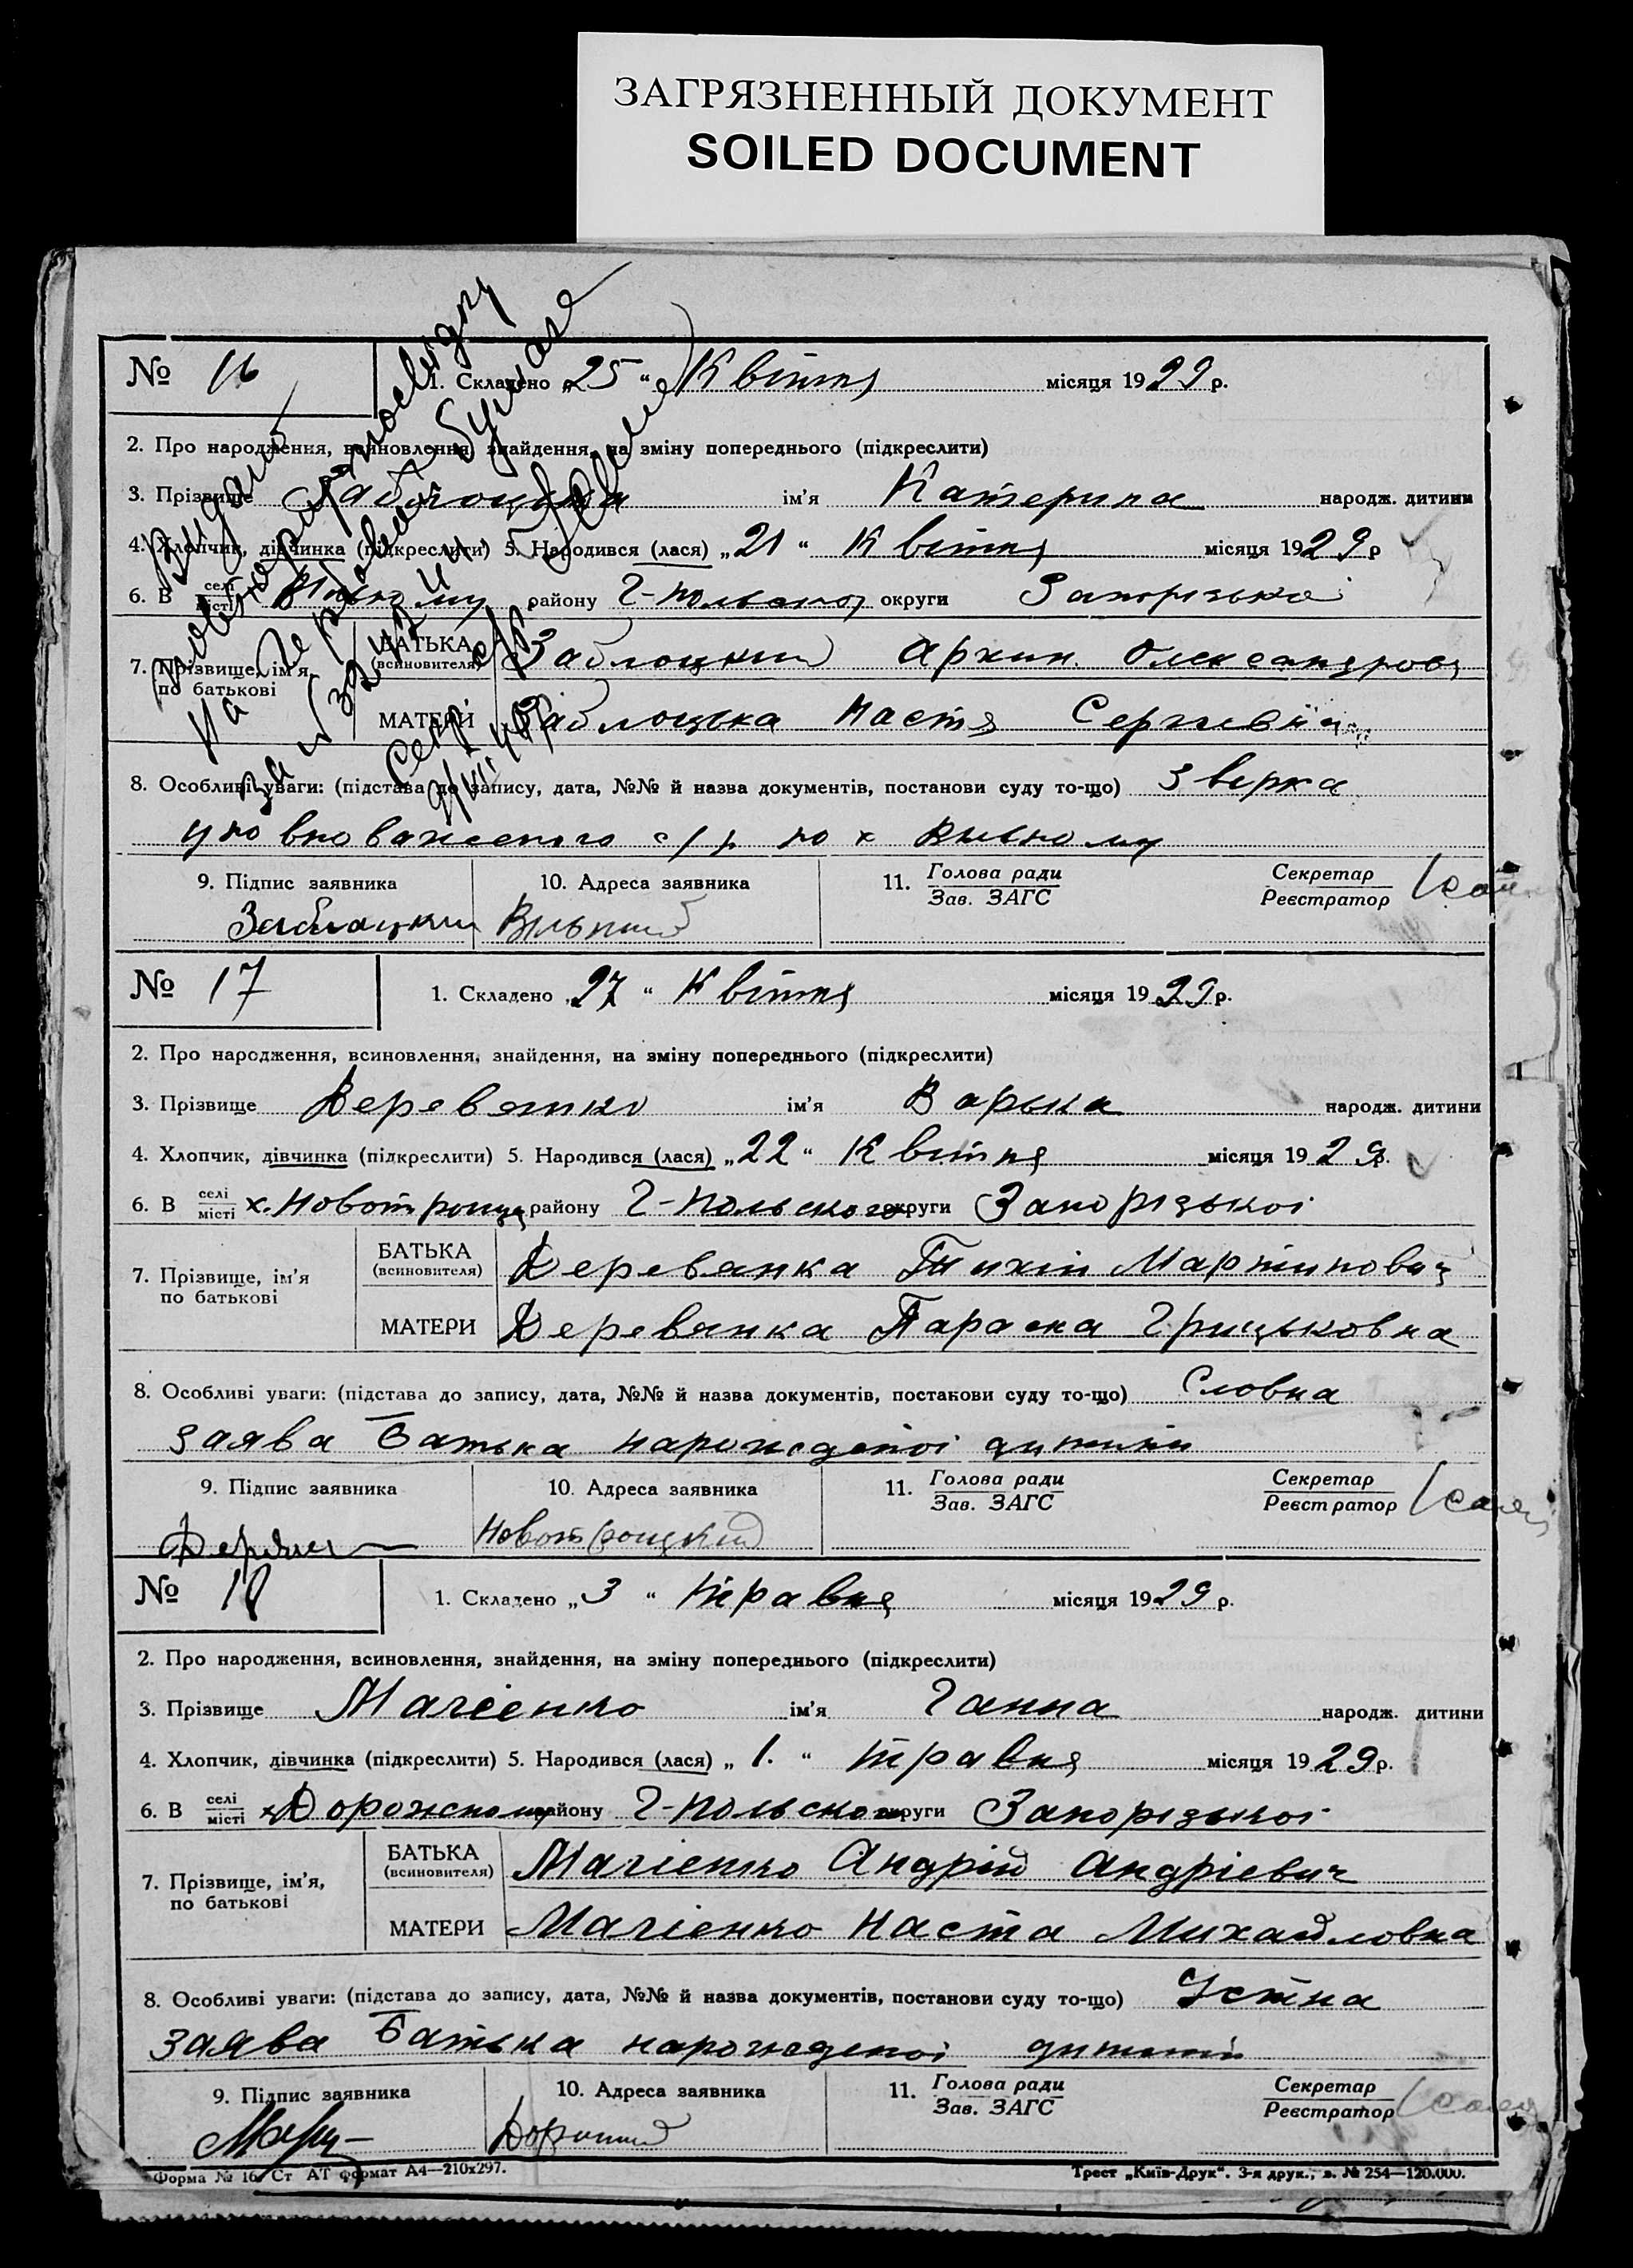 ЗАГРЯЗНЕННЫЙ ДОКУМЕНТ
SOILED DOCUMENT
№ 16 1. Складено „25“ Квітня місяця 1929 р.
2. Про народження, всиновлення, знайдення, на зміну попереднього (підкреслити)
3. Прізвище Заблоцька ім'я Катерина народж. дитини
4. Хлопчик, дівчинка (підкреслити) 5. Народився (лася) „21“ Квітня місяця 1929 р
6. В селі місті Вільному району Г-Польского округи Запорізькоі
7. Прізвище, ім'я, по батькові БАТЬКА (всиновителя) Заблоцкий Олександров
МАТЕРИ Заблоцька Настя Сергиевна
8. Особливі уваги: (підстава до запису, дата, №№ й назва документів, постанови суду то-що)
уповноваженого с/р по х Вильному
9. Підпис заявника 10. Адреса заявника 11. Голова ради Зав. ЗАГС Секретар Реєстратор
Заблоцкий Вільний
Видано
№ 17 1. Складено „27“ Квітня місяця 1929 р.
2. Про народження, всиновлення, знайдення, на зміну попереднього (підкреслити)
3. Прізвище Деревянко ім'я Варька народж. дитини
4. Хлопчик, дівчинка (підкреслити) 5. Народився (лася) „22“ Квітня місяця 1929 р.
6. В селі місті х. Новотроицк району Г-Польского округи Запорізькоі
7. Прізвище, ім'я по батькові БАТЬКА (всиновителя) Деревянка Тихін Мартинович
МАТЕРИ Деревянка Параска Грицьковна
8. Особливі уваги: (підстава до запису, дата, №№ й назва документів, постанови суду то-що) Словна
заява Батька нарожденоі дитини
9. Підпис заявника 10. Адреса заявника 11. Голова ради Зав. ЗАГС Секретар Реєстратор
Новотроицкий
№ 18 1. Складено „3“ травня місяця 1929 р.
2. Про народження, всиновлення, знайдення, на зміну попереднього (підкреслити)
3. Прізвище Магіенко ім'я Ганна народж. дитини
4. Хлопчик, дівчинка (підкреслити) 5. Народився (лася) „1.“ травня місяця 1929 р.
6. В селі місті х Дорожному району Г-Польского округи Запорізькоі
7. Прізвище, ім'я, по батькові БАТЬКА (всиновителя) Магіенко Андрій Андріевич
МАТЕРИ Магіенко Наста Михайловна
8. Особливі уваги: (підстава до запису, дата, №№ й назва документів, постанови суду то-що) Устна
заява Батька нарожденоі дитини
9. Підпис заявника 10. Адреса заявника 11. Голова ради Зав. ЗАГС Секретар Реєстратор
Форма № 16 Ст АТ формат А4—210х297. Трест „Київ-Друк“. 3-я друк., з. № 254—120.000.